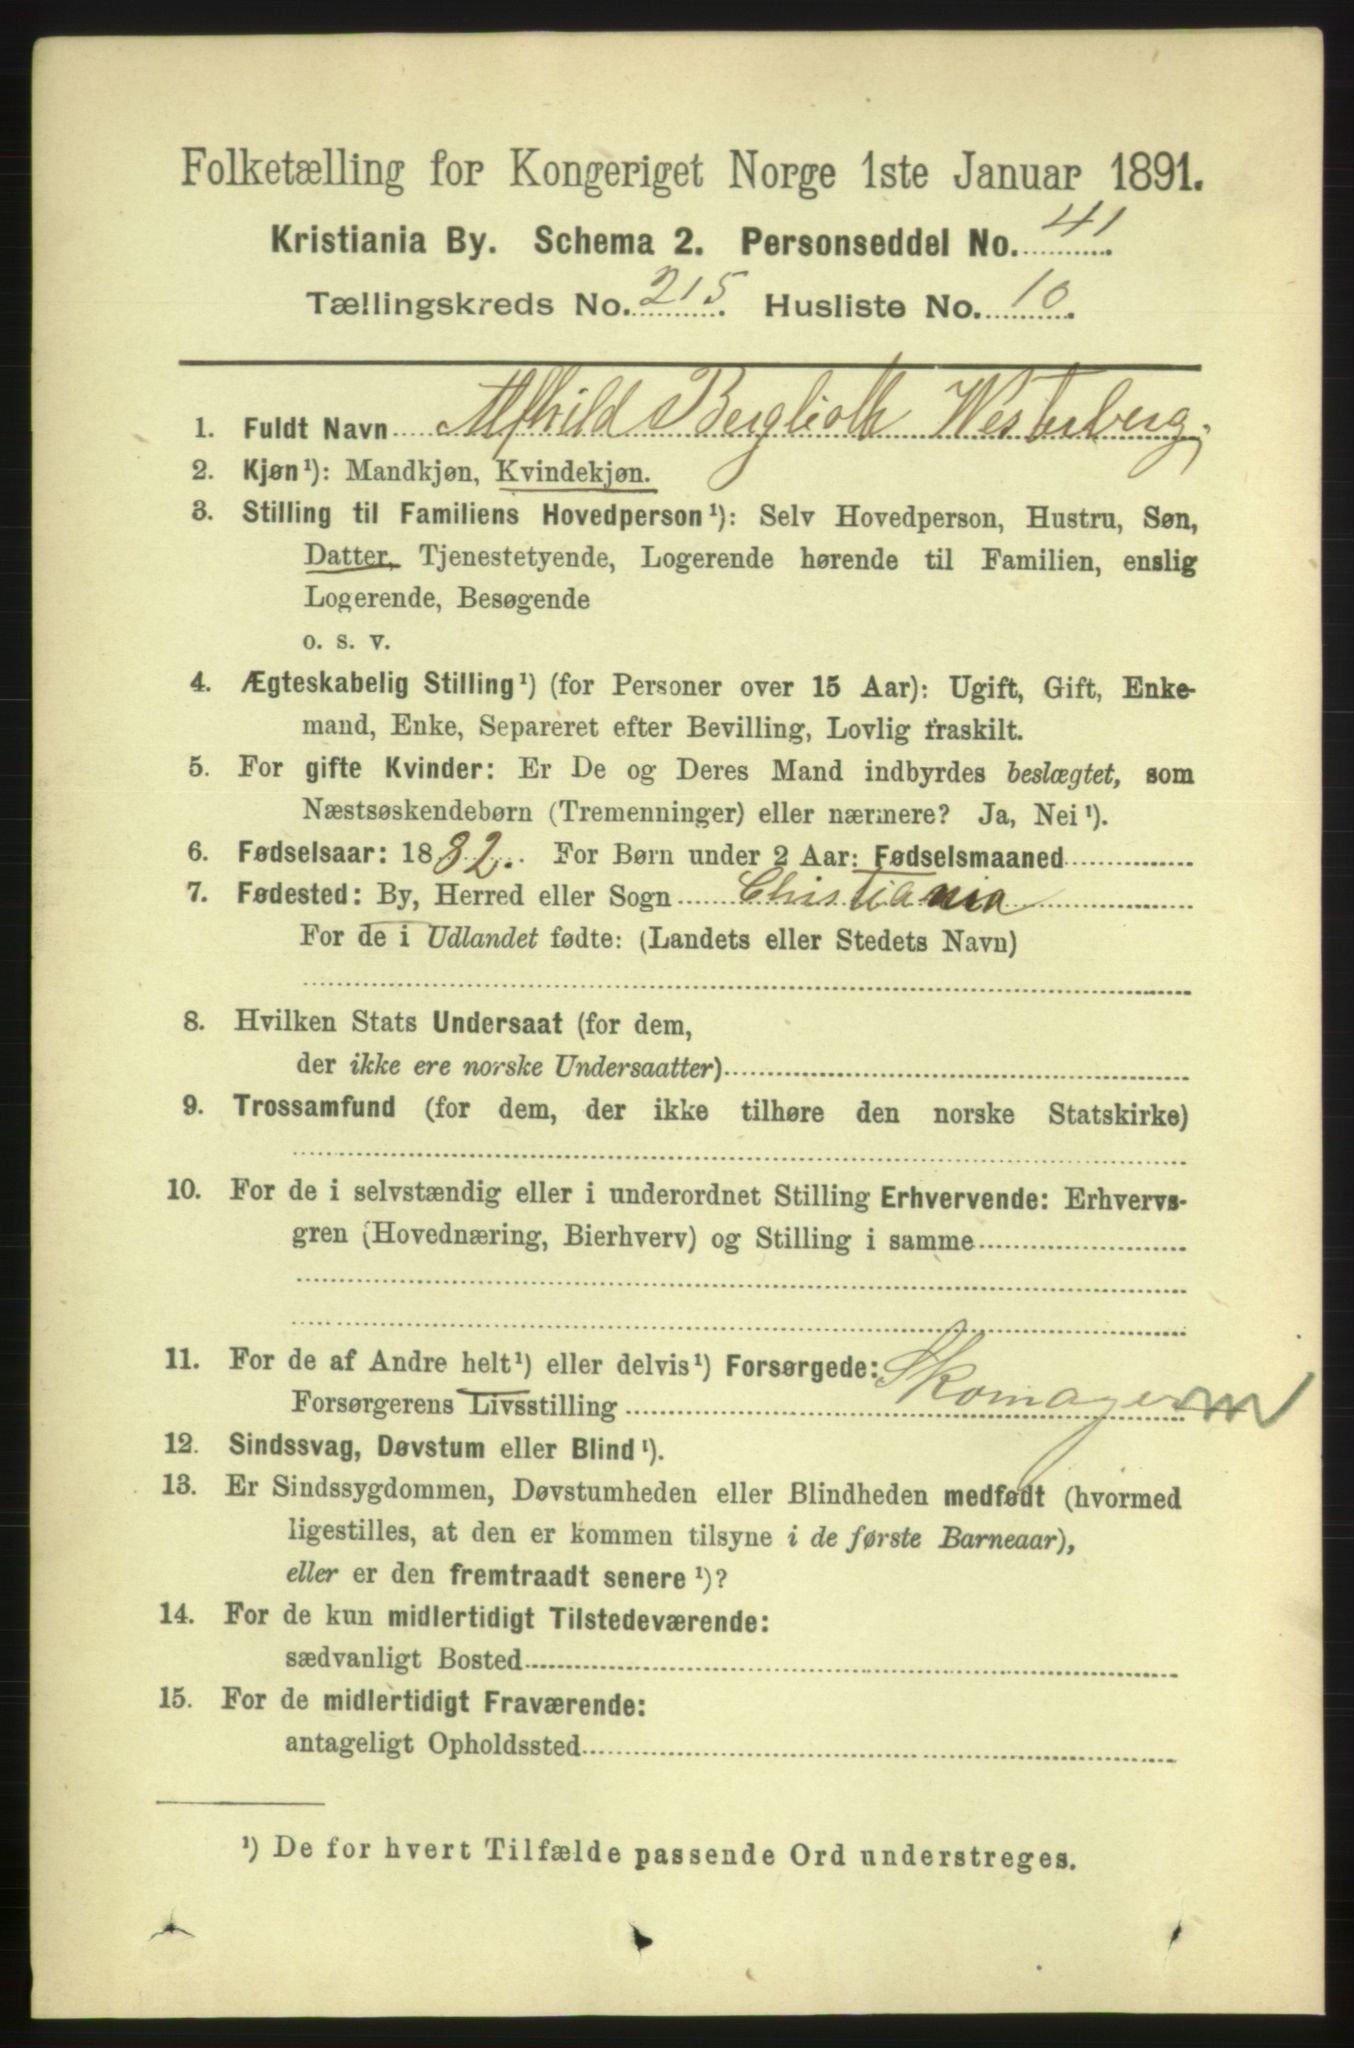 Folketælling for Kongeriget Norge 1ste Januar 1891.
Kristiania By. Schema 2. Personseddel No. 41.
Tællingskreds No. 215. Husliste No. 10.
1. Fuldt Navn Alfhild Berglioth Westerberg,
2. Kjøn¹): Mandkjøn, Kvindekjøn.
3. Stilling til Familiens Hovedperson¹): Selv Hovedperson, Hustru, Søn,
Datter, Tjenestetyende, Logerende hørende til Familien, enslig
Logerende, Besøgende
o. s. v.
4. Ægteskabelig Stilling¹) (for Personer over 15 Aar): Ugift, Gift, Enke-
mand, Enke, Separeret efter Bevilling, Lovlig fraskilt.
5. For gifte Kvinder: Er De og Deres Mand indbyrdes beslægtet, som
Næstsøskendebørn (Tremenninger) eller nærmere? Ja, Nei¹).
6. Fødselsaar: 1882. For Børn under 2 Aar: Fødselsmaaned
7. Fødested: By, Herred eller Sogn Christiania
For de i Udlandet fødte: (Landets eller Stedets Navn)
8. Hvilken Stats Undersaat (for dem,
der ikke ere norske Undersaatter)
9. Trossamfund (for dem, der ikke tilhøre den norske Statskirke)
10. For de i selvstændig eller i underordnet Stilling Erhvervende: Erhvervs-
gren (Hovednæring, Bierhverv) og Stilling i samme
11. For de af Andre helt¹) eller delvis¹) Forsørgede:
Forsørgerens Livsstilling Skomager m
12. Sindssvag, Døvstum eller Blind¹).
13. Er Sindssygdommen, Døvstumheden eller Blindheden medfødt (hvormed
ligestilles, at den er kommen tilsyne i de første Barneaar),
eller er den fremtraadt senere¹)?
14. For de kun midlertidigt Tilstedeværende:
sædvanligt Bosted
15. For de midlertidigt Fraværende:
antageligt Opholdssted
¹) De for hvert Tilfælde passende Ord understreges.